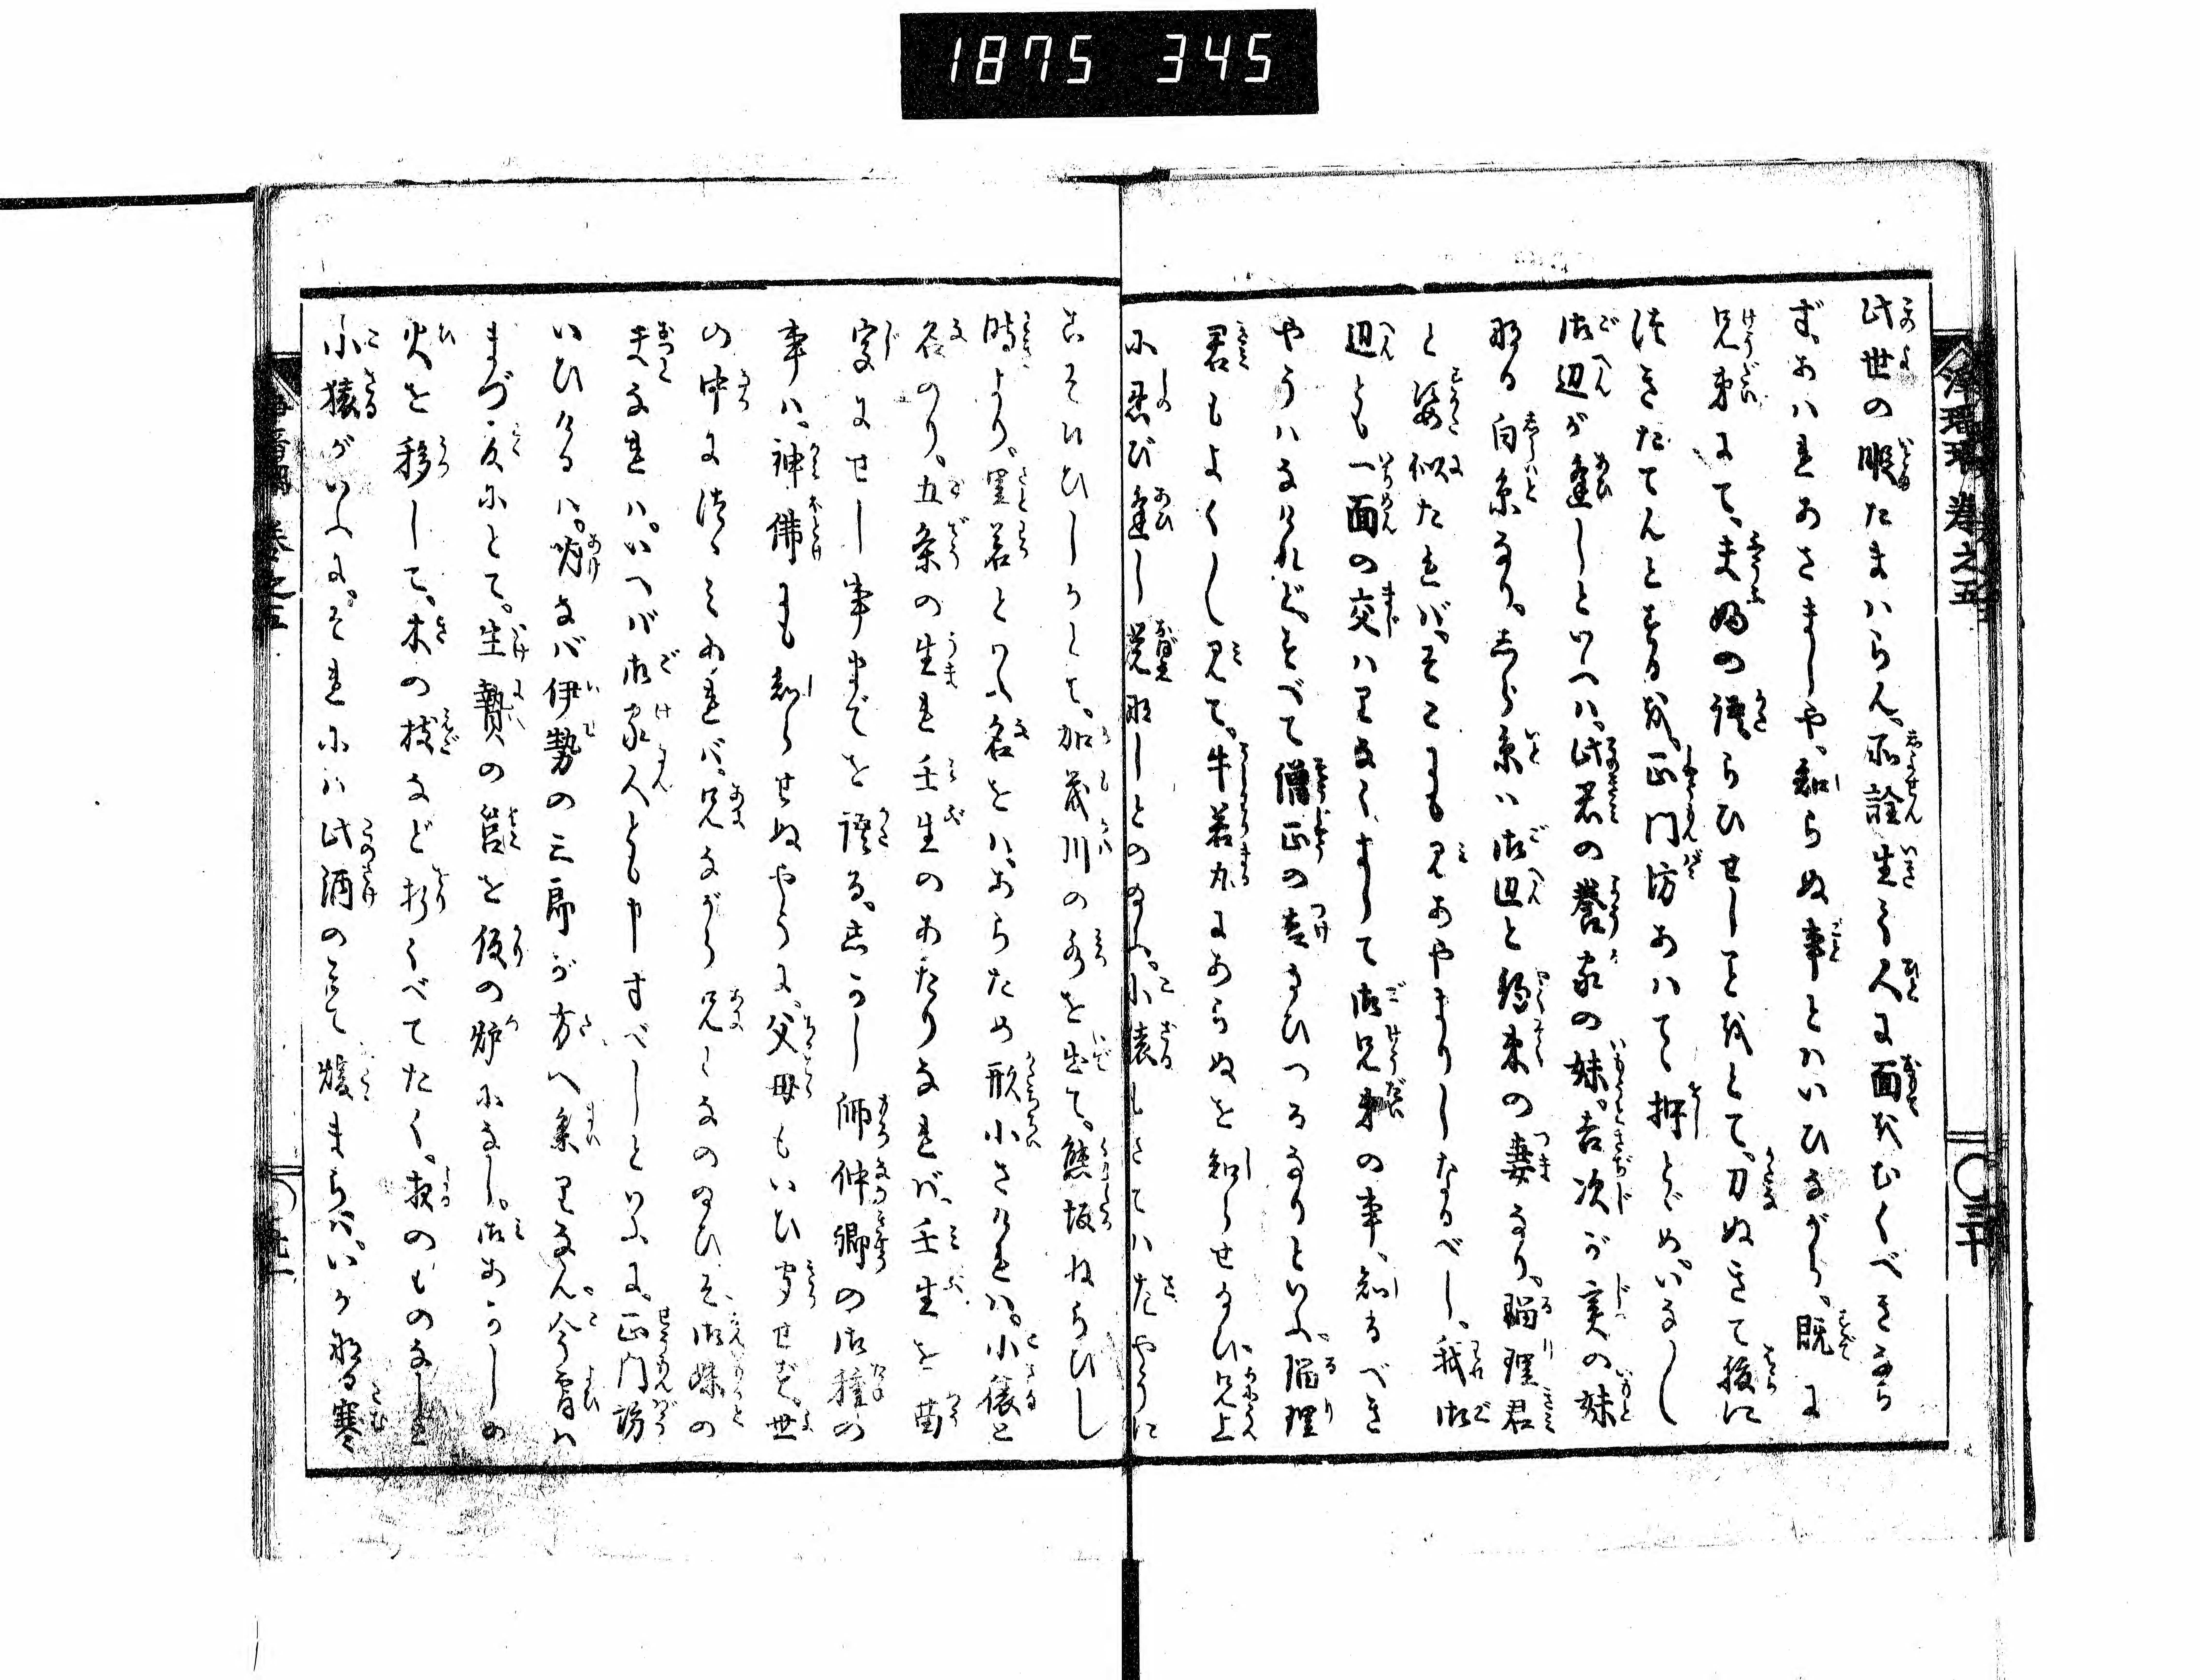 1875 345
浄瑠璃 巻之五
三十
此世の暇たまはらん。所詮生て人に面をむくべきなら
ず。あはれあさましや。知らぬ事とはいひながら。既に
兄弟にて。夫婦の語らひせしことよとて。刀ぬきて腹に
つきたてんとするを。正門坊あはてゝ押とゞめ。いな〳〵し
御辺が逢しといへハ。此君の養家の妹。吉次が実の妹
なる白糸なり。しら糸ハ御辺と約束の妻なり。瑠璃君
と姿似たれバ。そこにも見あやまりしなるべし。我御
辺とも一面の交ハりなくまして御兄弟の事、知るべき
やうハなけれど。すべて僧正の告給ひつるなりといふ。瑠璃
君もよく〳〵見て。牛若丸にあらぬを知らせ給ひ、兄上
に忍び逢し覚なしとのたまふ。小猿しさてハたやうに
こそ候ひしかとて。加茂川の水を出て。熊坂ねらひし
時より。里若といふ名をハ。あらため形小さけれハ。小猿と
名のり。五条の生れ壬生のあたりなれバ、壬生を苗
字にせし事までを語る。しかし師仲卿の御種の
事ハ、神佛にも知らせぬやうに。父母もいひ聞せず。世
の中につゝみあれバ。兄ながら兄となのたまひそ、御妹の
夫なれハ。いへバ御家人とも申すべしといふに。正門坊
いひけるハ。明なバ伊勢の三郎が方へ参りなん。今宵ハ
まづ爰にとて。生贄の筥を仮の炉になし。御あかしの
火を移して。木の枝など折くべてたく。夜のものなし
小猿がいふに。それにハ此酒のミて煖まらバ。いかなる寒